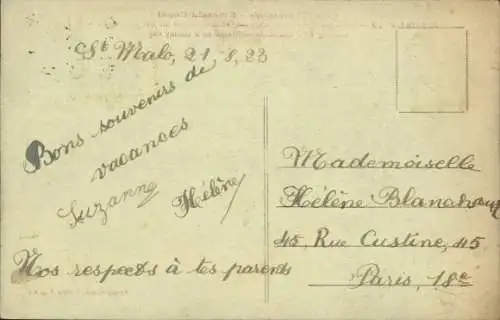 St Malo, 21.8.23
Bons souvenirs de
vacances
Suzanne Hélène
Nos respects à tes parents
Mademoiselle
Hélène
45, Rue Custine, 45
Paris, 18e